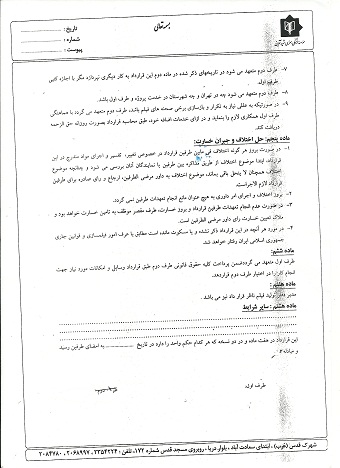 بسمه تعالی
تاریخ :
شماره :
پیوست :
۷- طرف دوم متعهد می شود در تاریخهای ذکر شده در ماده دوم این قرارداد به کار دیگری نپردازد مگر با اجازه کتبی
طرف اول.
۸- طرف دوم متعهد می شود چه در تهران و چه شهرستان در خدمت پروژه و طرف اول باشد.
۹- در صورتیکه به عللی نیاز به تکرار و بازسازی برخی صحنه های فیلم باشد، طرف دوم متعهد می گردد با هماهنگی
طرف اول همکاری لازم را بنماید و در ازای خدمات اضافه خود، طبق محاسبه قرارداد بصورت روزانه حق الزحمه
دریافت کند.
ماده پنجم: حل اختلاف و جبران خسارت:
۱- در صورت بروز هر گونه اختلاف فی مابین طرفین قرارداد در خصوص تعبیر، تفسیر و اجرای مواد مندرج در این
قرارداد، ابتدا موضوع اختلاف از طریق مذاکره بین طرفین یا نمایندگان آنان بررسی می شود و چنانچه موضوع
اختلاف همچنان لاینحل باقی بماند، موضوع اختلاف به داور مرضی الطرفین، ارجاع و رای صادره برای طرفین
قرارداد لازم الاجراست.
۲- بروز اختلاف و اجرای امر داوری به هیچ عنوان مانع انجام تعهدات طرفین نمی گردد.
۳- در صورت عدم انجام تعهدات طرفین قرارداد و بروز خسارت، طرف مقصر موظف به تامین خسارت خواهد بود و
ملاک تعیین خسارت رای داور مرضی الطرفین است.
۴- در مورد هر آنچه در این قرارداد ذکر نشده و یا مسکوت مانده است مطابق با عرف امور فیلمسازی و قوانین جاری
جمهوری اسلامی ایران رفتار خواهد شد.
ماده ششم:
طرف اول متعهد می گردد ضمن پرداخت کلیه حقوق قانونی طرف دوم طبق قرارداد وسایل و امکانات مورد نیاز جهت
انجام کار را در اختیار طرف دوم قرار دهد.
ماده هفتم:
مدیر تولید فیلم ناظر قرار داد نیز می باشد.
ماده هشتم : سایر شرایط
این قرارداد در هفت ماده و در دو نسخه که هر کدام حکم واحد را دارد در تاریخ به امضای طرفین رسید
و مبادله
طرف اول:
شهرک قدس (غرب) ، ابتدای سعادت آباد، بلوار دریا، روبروی مسجد قدس شماره ۱۷۲، تلفن : ۲۳۵۴۲۲۴ ، ۲۰۶۸۹۹۷ ، ۲۰۸۴۷۸۰